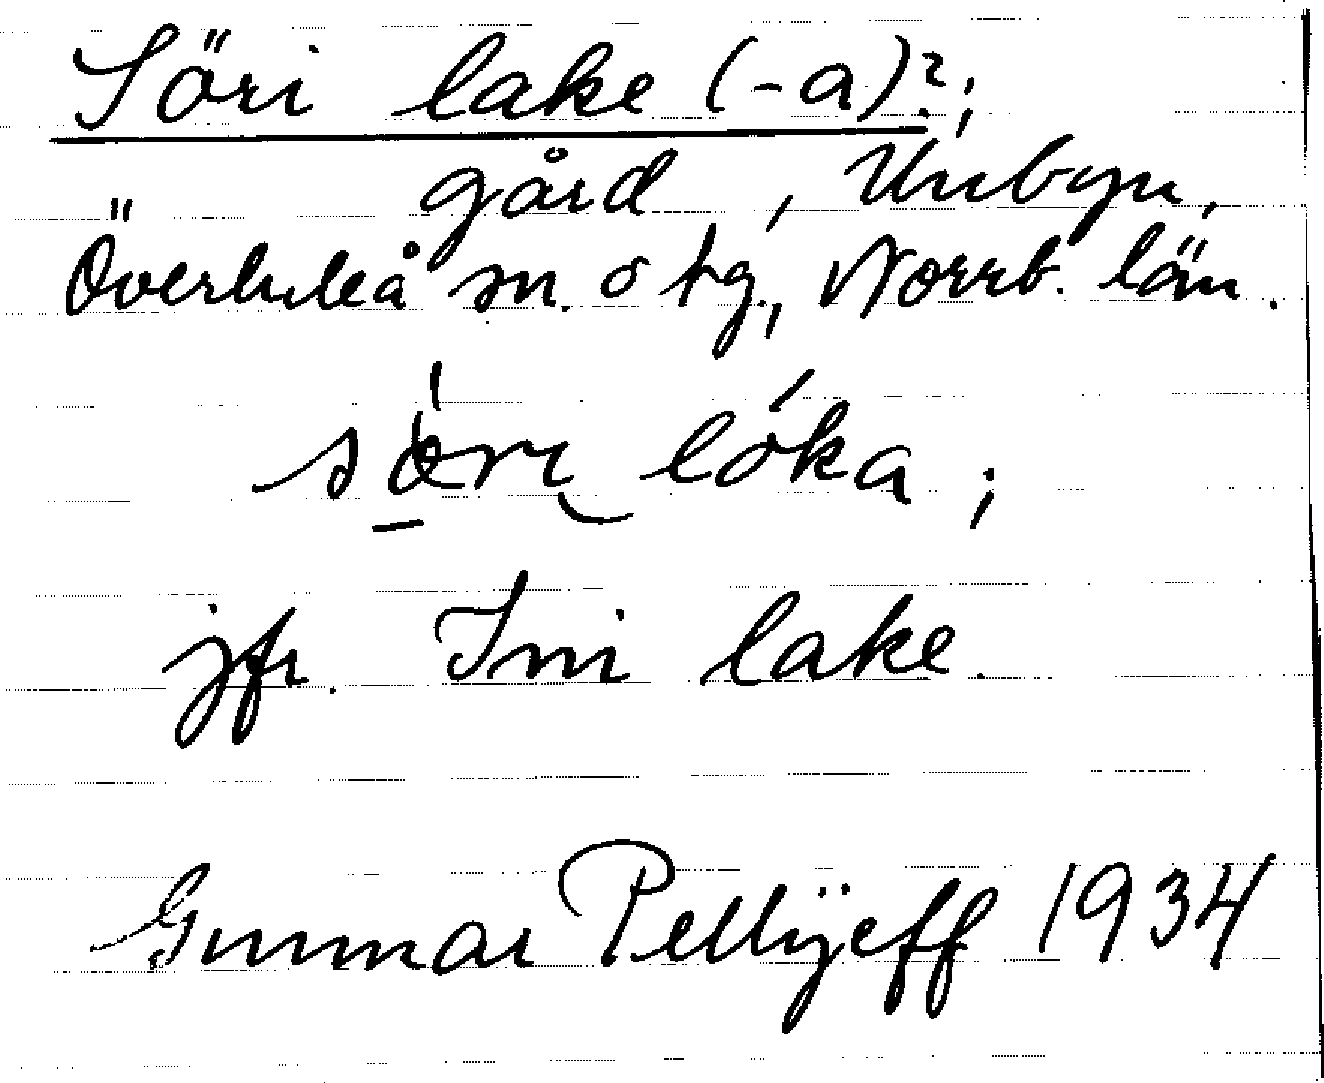 Söri lake (-a)?;
gård, Unbyn,
Överluleå sn. o tg., Norrb. län.
söri lóka;
jfr. Ini lake.
Gunnar Pellijeff 1934